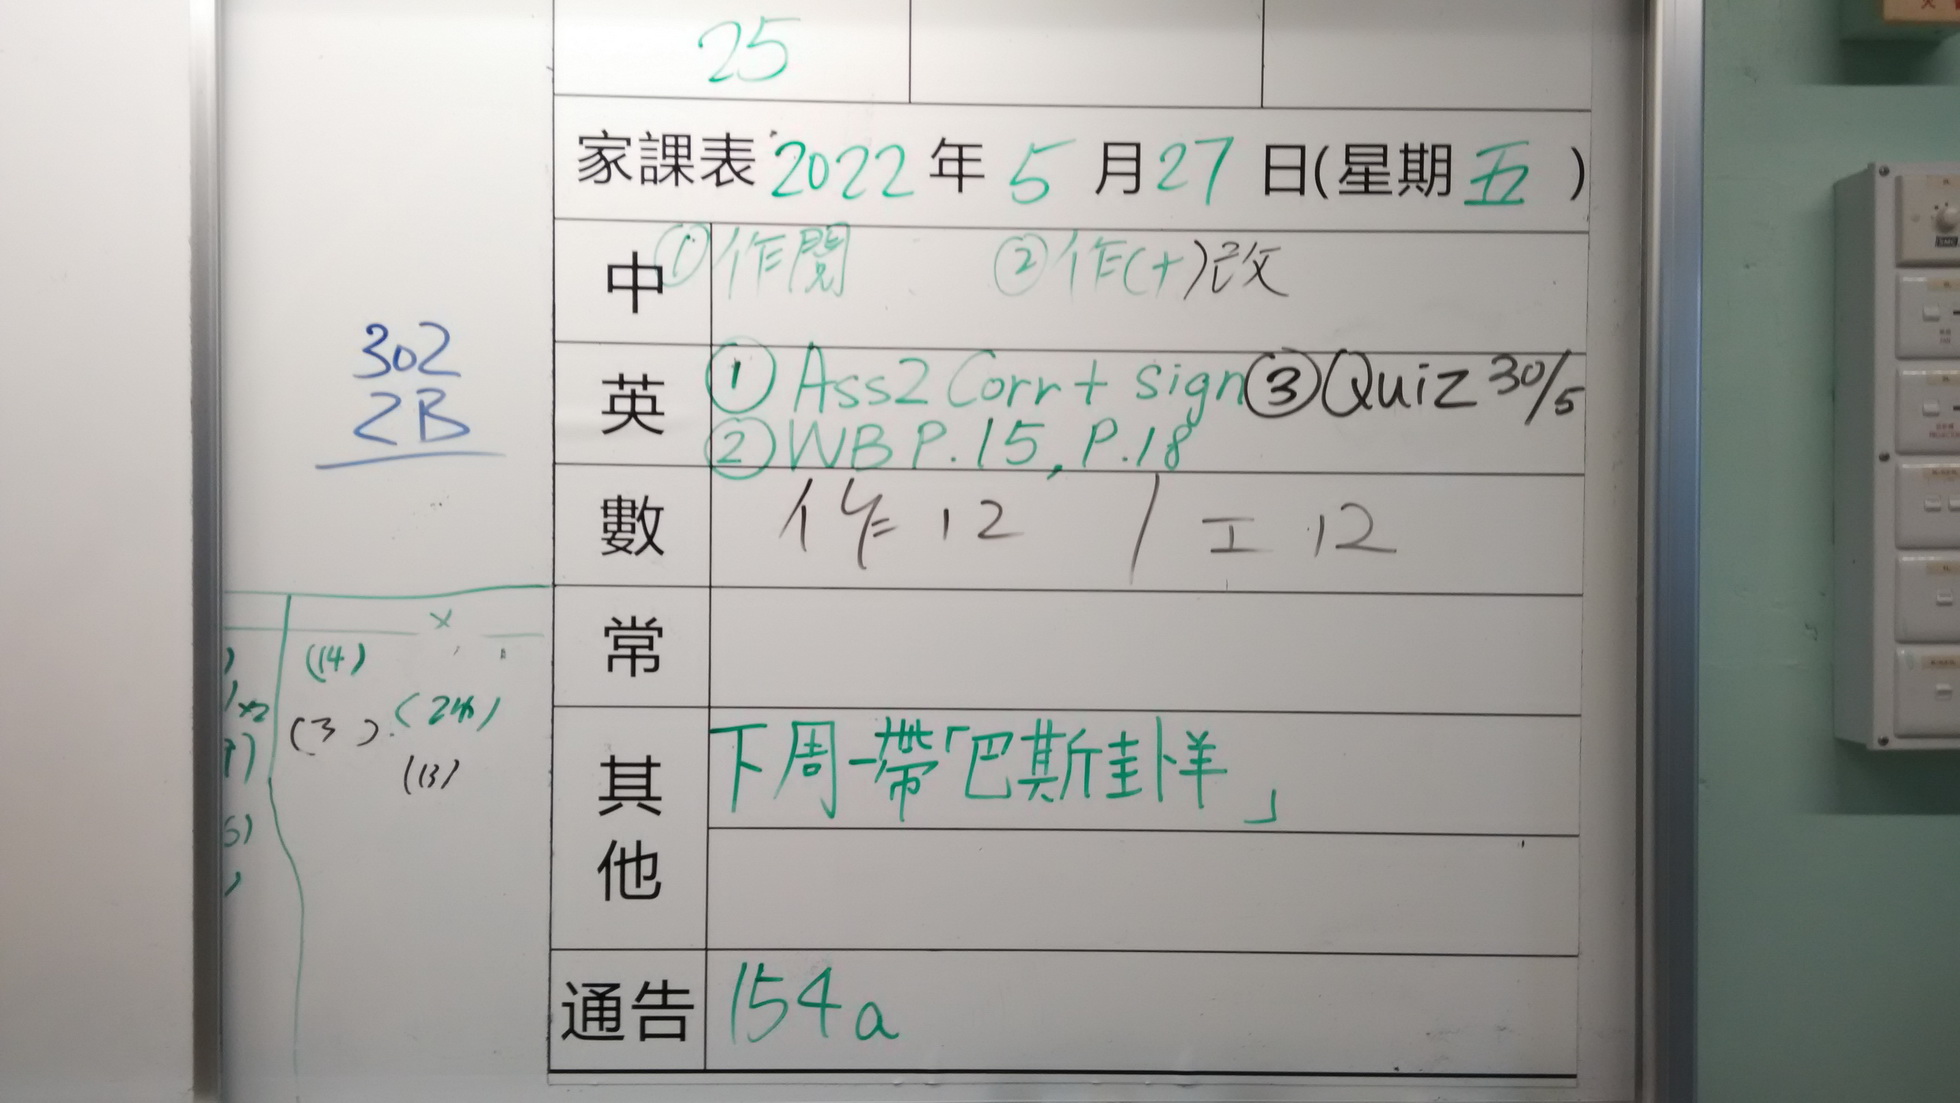 25
家課表 2022 年 5 月 27 日(星期 五 )
中 ① 作閱 ② 作(十)改
英 ① Ass2 Corr + sign ③ Quiz 30/5
② WB P.15, P.18
數 作 12 / 工 12
常
其他 下周一帶「巴斯卦咩」
通告 154a
302
2B
x
(14)
x2
(3) (24)
(13)